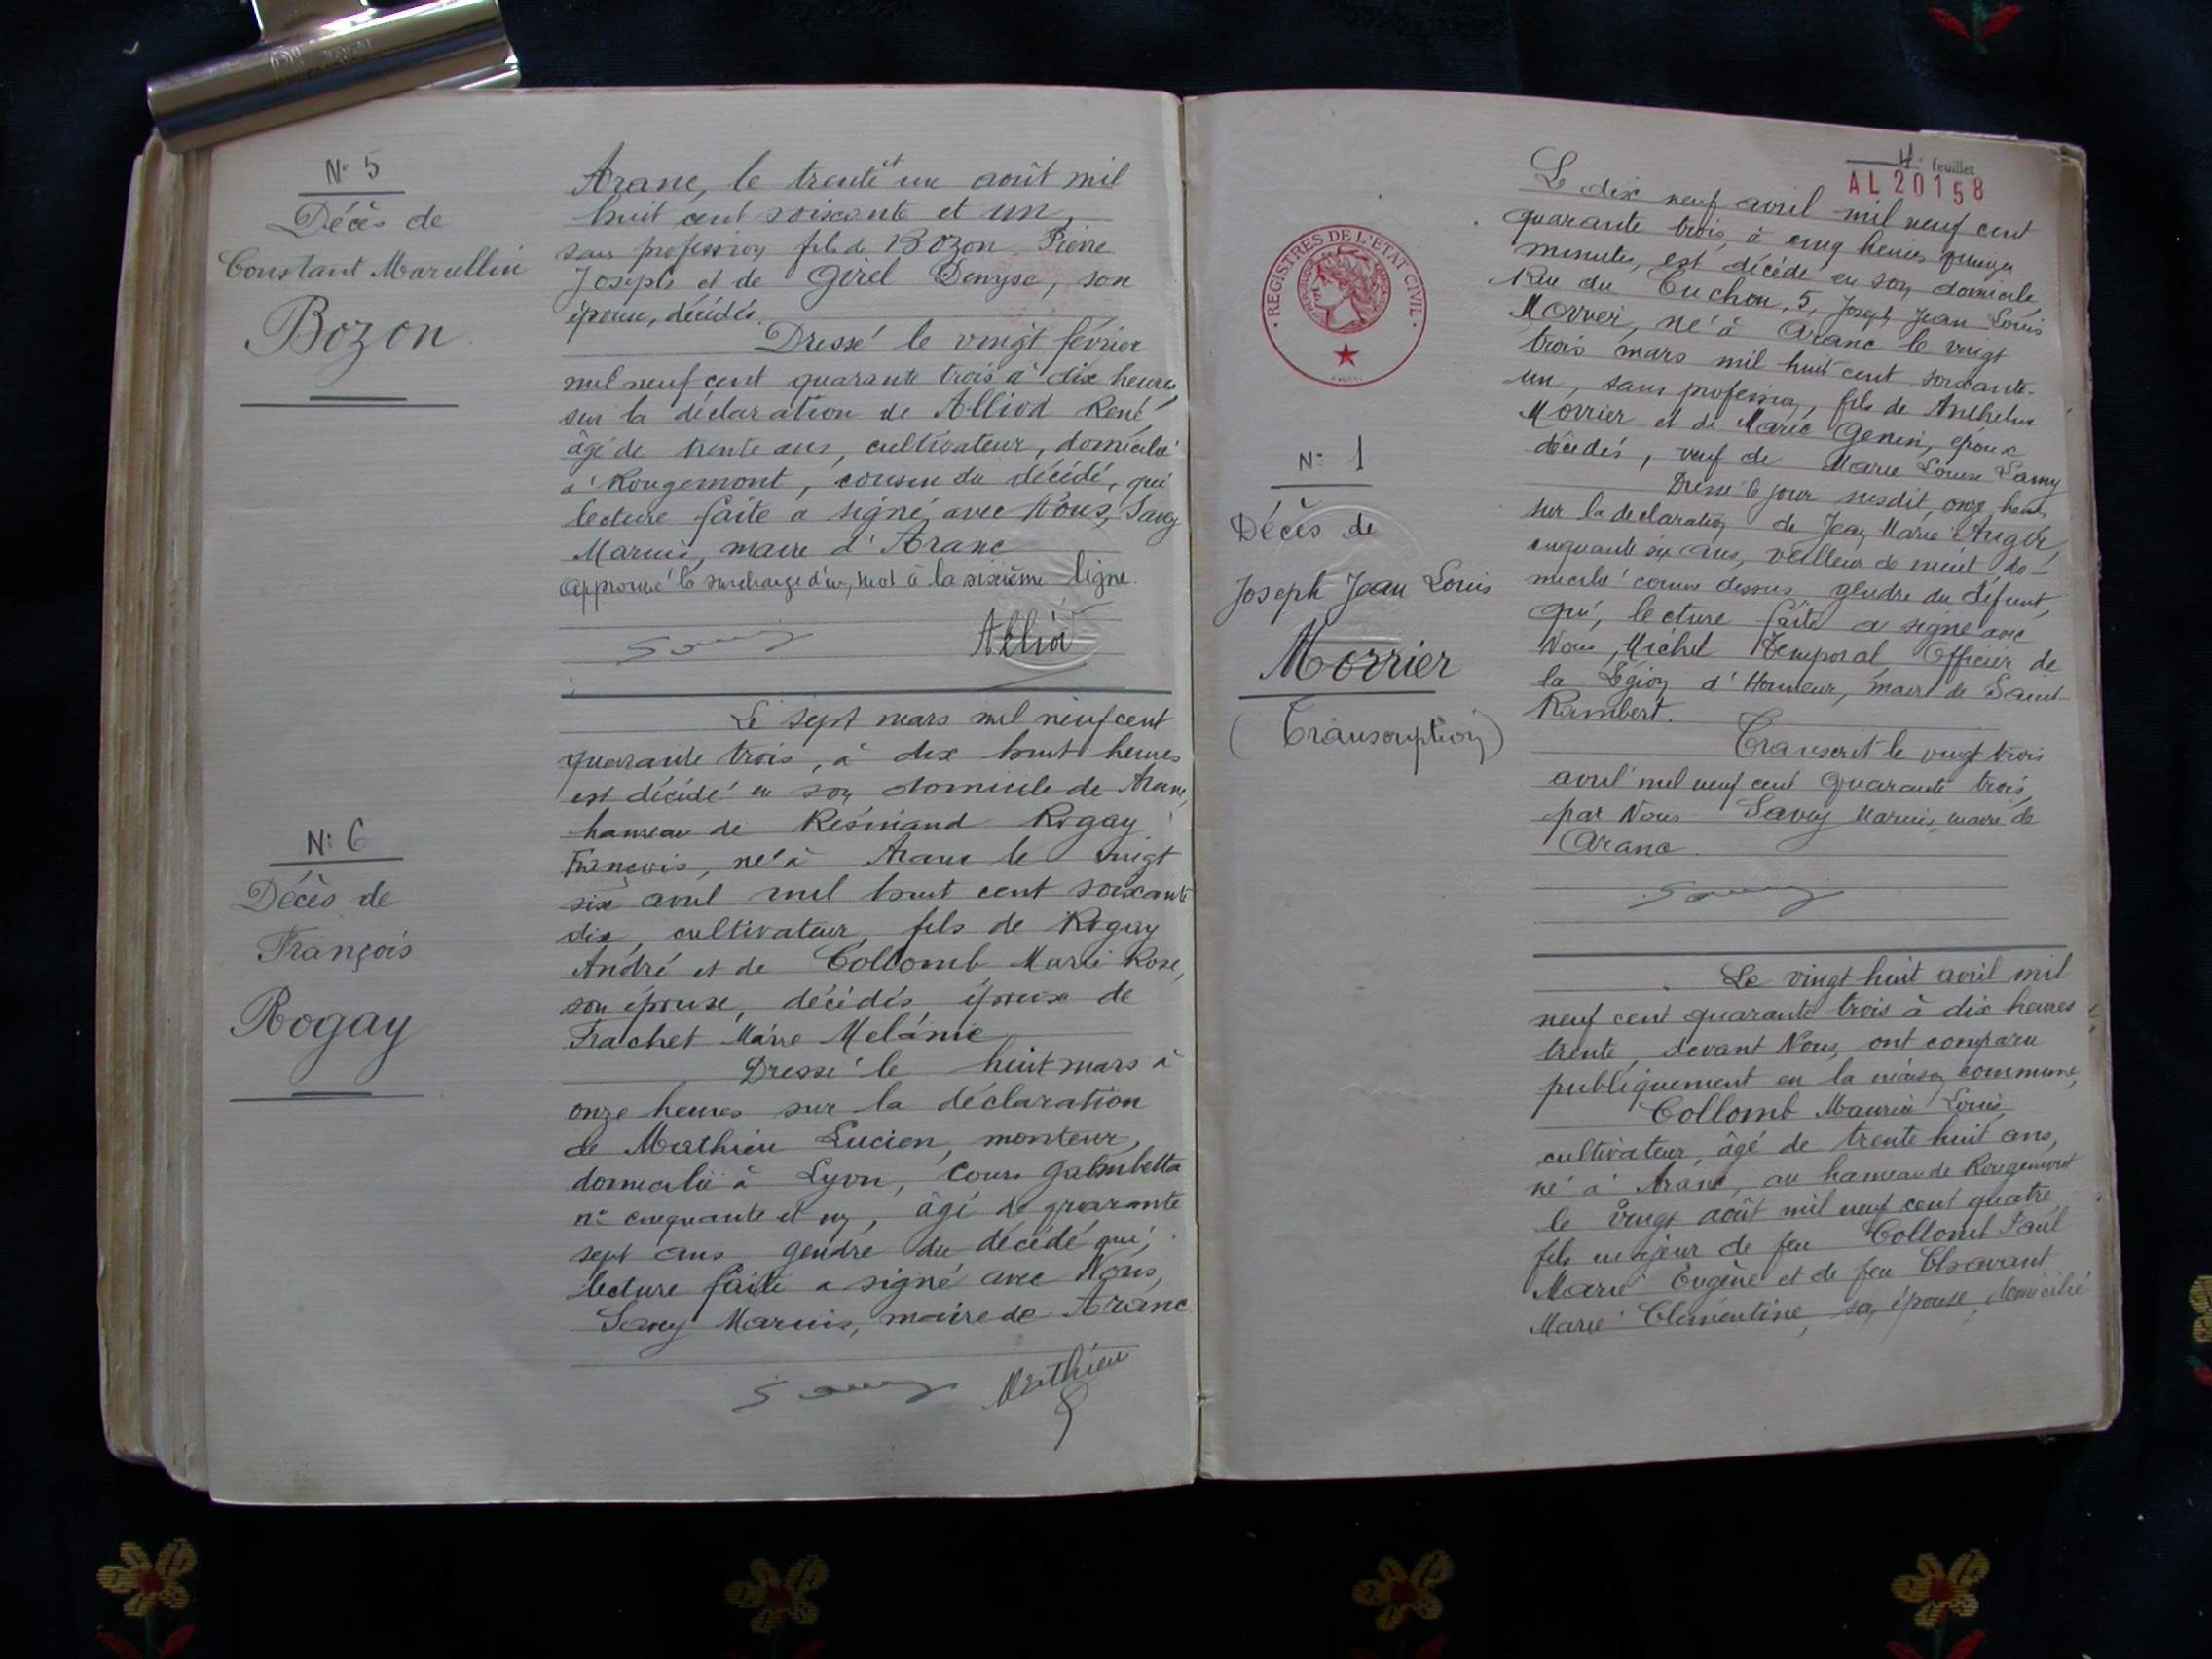 N° 5
Décès de
Constant Marcellin
Bozon
Aranc, le trente et un août mil
huit cent soixante et un,
sans profession, fils de Bozon Pierre
Joseph et de Girel Denyse, son
épouse, décédés.
Dressé le vingt février
mil neuf cent quarante trois à dix heures,
sur la déclaration de Alliod René,
âgé de trente ans, cultivateur, domicilié
à Rougemont, cousin du décédé, qui
lecture faite a signé avec Nous, Savey
Marius, maire d'Aranc
Approuvé la surcharge d'un mot à la sixième ligne.
Savey Alliod
N° 6
Décès de
François
Rogay
Le sept mars mil neuf cent
quarante trois, à dix huit heures
est décédé en son domicile de Aranc,
hameau de Résinand Rogay
François, né à Aranc le vingt
six avril mil huit cent soixante
dix, cultivateur, fils de Rogay
André et de Collomb Marie Rose,
son épouse, décédés, époux de
Frachet Marie Mélanie
Dressé le huit mars à
onze heures sur la déclaration
de Mathieu Lucien, monteur,
domicilié à Lyon, Cours Gambetta
n° cinquante et un, âgé de quarante
sept ans gendre du décédé qui,
lecture faite a signé avec Nous,
Savey Marius, maire de Aranc
Savey Mathieu
4e feuillet
AL 20158
REGISTRES DE L'ETAT CIVIL
N° 1
Décès de
Joseph Jean Louis
Morrier
(Transcription)
Le dix neuf avril mil neuf cent
quarante trois, à cinq heures quinze
minutes, est décédé en son domicile,
Rue du Tuchon, 5, Joseph Jean Louis
Morrier, né à Aranc le vingt
trois mars mil huit cent soixante-
un, sans profession, fils de Anthelme
Morrier et de Marie Genin, époux
décédés, veuf de Marie Louise Lamy
Dressé le jour susdit, onze heures
sur la déclaration de Jean Marie Auger,
cinquante six ans, veilleur de nuit do-
micilié comme dessus gendre du défunt,
qui, lecture faite a signé avec
Nous, Michel Temporal, Officier de
la Légion d'Honneur, maire de Saint
Rambert.
Transcrit le vingt trois
avril mil neuf cent quarante trois,
par Nous Savey Marius, maire de
Aranc.
Savey
Le vingt huit avril mil
neuf cent quarante trois à dix heures
trente, devant Nous, ont comparu
publiquement en la maison commune,
Collomb Maurice Louis,
cultivateur, âgé de trente huit ans,
né à Aranc, au hameau de Rougemont
le vingt août mil neuf cent quatre
fils majeur de feu Collomb Paul
Marie Eugène et de feu Chavant
Marie Clémentine, son épouse, domicilié